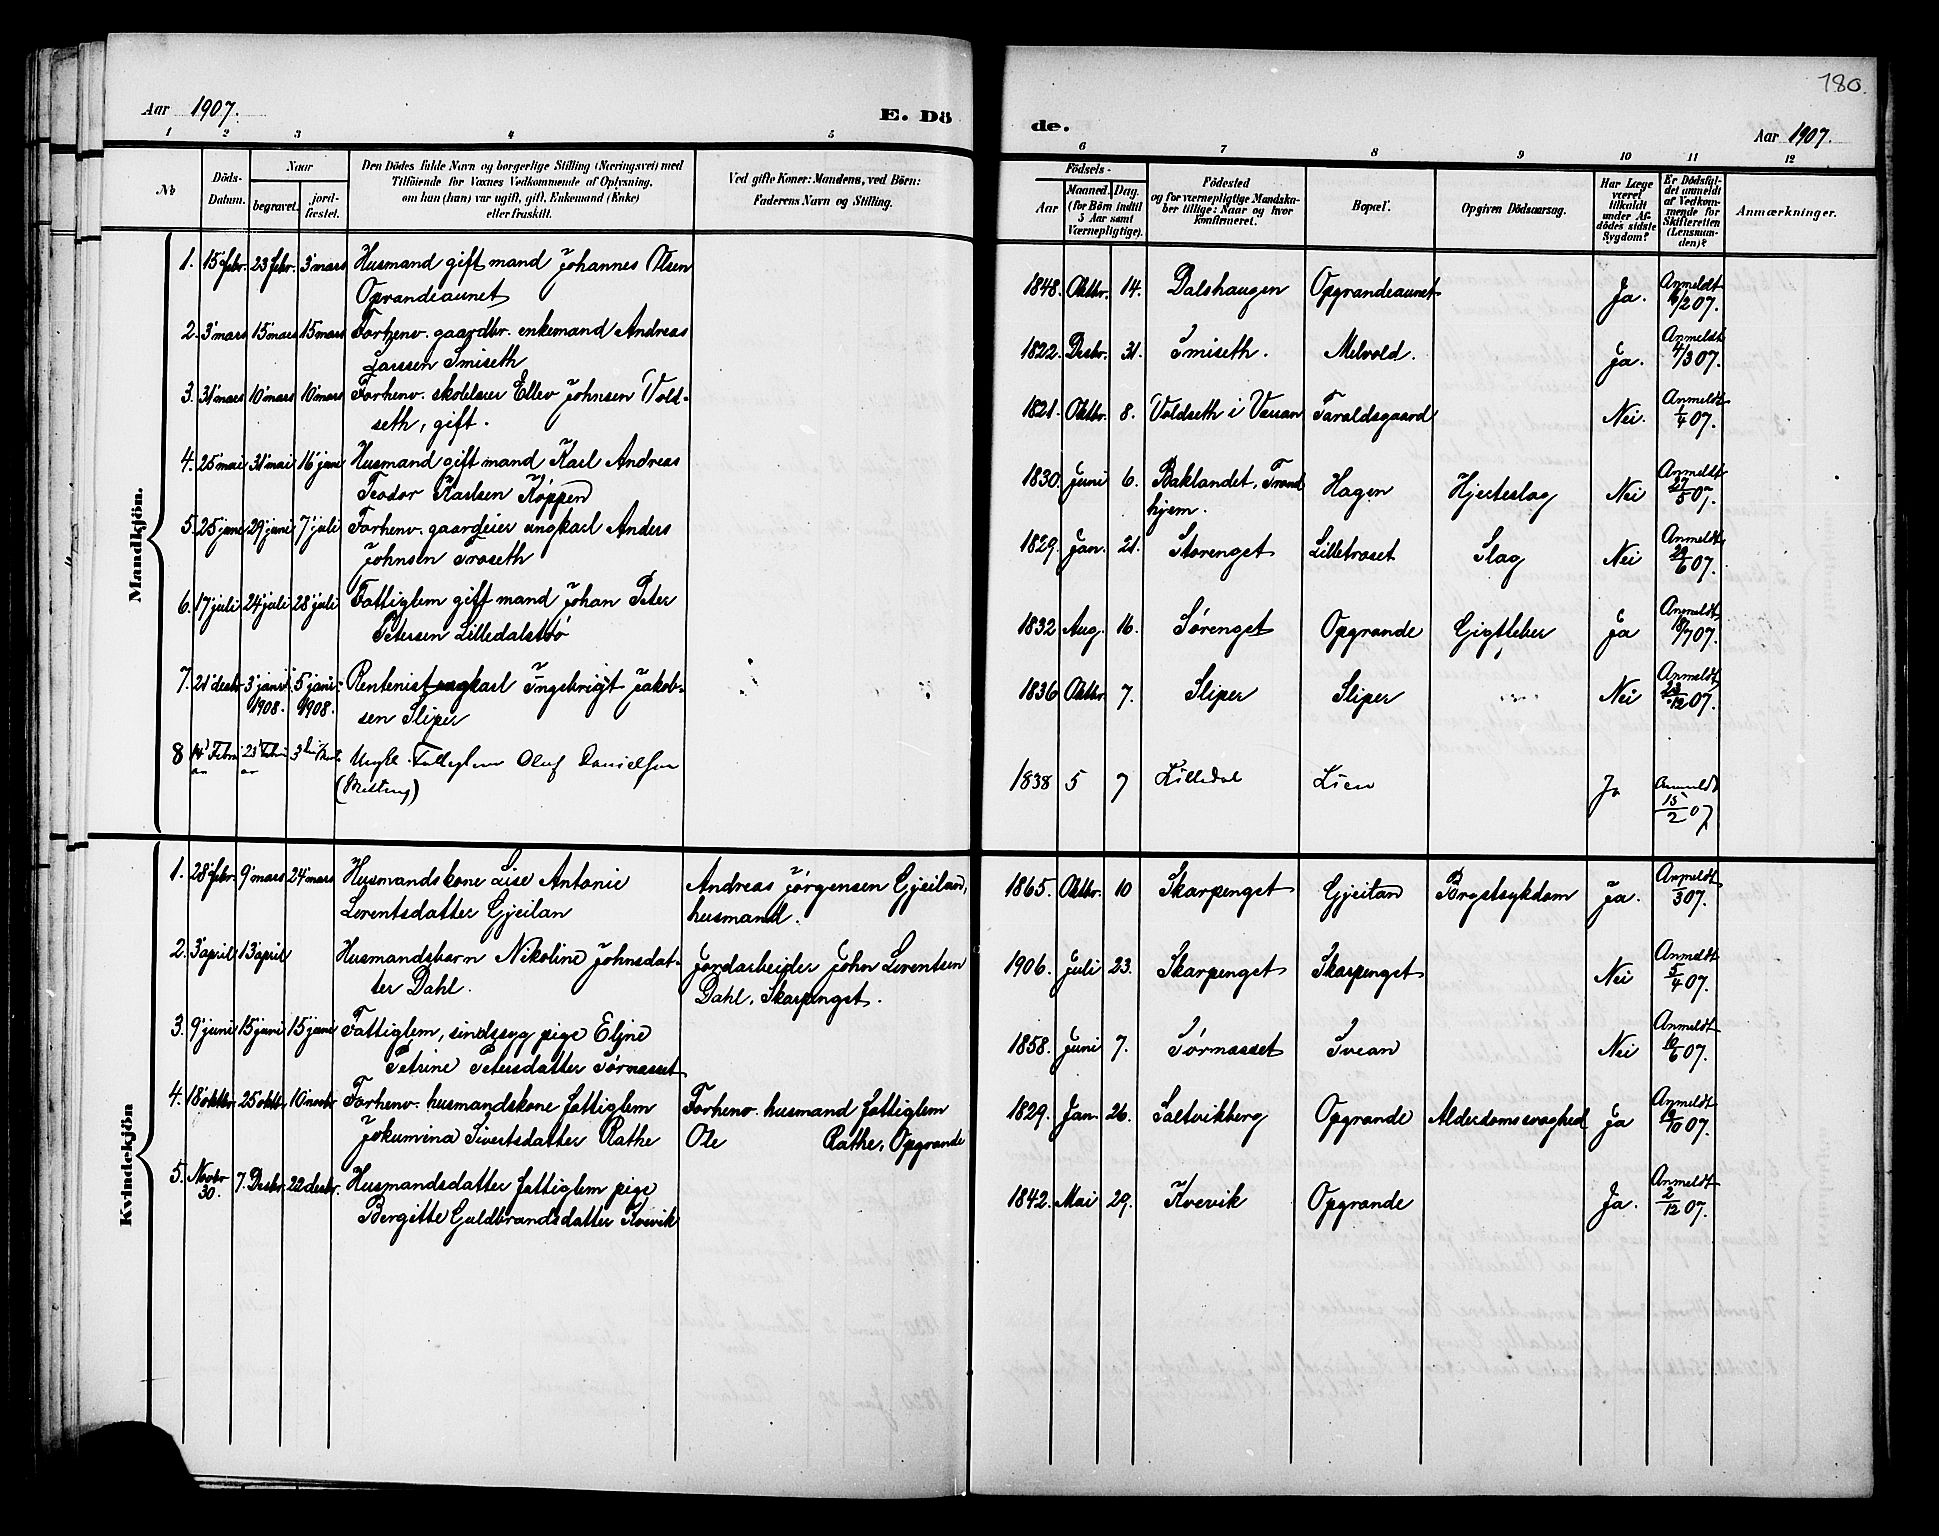 180.
Aar 1907.
E. Dö
de.
Aar 1907.
1 2 3 4 5
6 7 8 9 10 11 12
No
Döds-
Datum.
Naar
begravet.
jord-
fæstet.
Den Dödes fulde Navn og borgerlige Stilling (Næringsvei) med
Tilföiende for Voxnes Vedkommende af Oplysning,
om han (hun) var ugift, gift, Enkemand (Enke)
eller fraskilt.
Ved gifte Koner: Mandens, ved Börn:
Faderens Navn og Stilling.
Födsels-
Aar
Maaned. Dag.
(for Börn indtil
5 Aar samt
Værnepligtige).
Födested
og for værnepligtige Mandska-
ber tillige: Naar og hvor
konfirmeret.
Bopæl.
Opgiven Dödsaarsag.
Har Læge
været
tilkaldt
under Af-
dödes sidste
Sygdom?
Er Dödsfal-
det anmeldt
af Vedkom-
mende for
Skifteretten
(Lensman-
den)?
Anmærkninger.
Mandkjön.
1. 15' febr. 23 febr. 3' mars Husmand gift mand Johannes Olsen
Opgrandeaunet
1848. Oktbr. 14. Dalshaugen Opgrandeaunet Ja. Anmeldt
16/2 07.
2. 3' mars 15' mars 15 mars Forhenv. gaardbr. enkemand Andreas
Larssen Smiseth
1822. Desbr. 31. Smiseth. Melvold. Ja. Anmeldt
4/3 07.
3. 31' mars 10' mars 10' mars Forhenv. skolelærer Ellev Johnsen Vold-
seth, gift.
1821. Oktbr. 8. Voldseth i Vuan Taraldsgaard Nei. Anmeldt
1/4 07.
4. 25' mai 31' mai 16' juni Husmand gift mand Karl Andreas
Teodor Karlsen Køppen
1830. Juni 6. Baklandet, Trond
hjem. Hagen Hjerteslag Nei Anmeldt
27/5 07.
5. 25' juni 29' juni 7' juli Forhenv. gaardeier ungkarl Anders
Johnsen Troseth
1829. Jan. 21. Storenget Lilletroset Slag Nei Anmeldt
29/6 07.
6. 17 juli 24' juli 28' juli Fattiglem gift mand Johan Peter
Petersen Lilledalstrø
1832 Aug. 16. Sørenget Opgrande Gigtfeber Ja Anmeldt
18/7 07.
7. 21' desbr 3' jan. 5' jan. Rentenist ungkarl Ingebrigt Jakob-
1908. 1908. sen Sliper
1836 Oktbr 7. Sliper Sliper Nei Anmeldt
23/12 07.
8 14' Febru 23' Febru 3 Fattiglem Oluf Danielsen
ar ar
1838 5 7 Lilledal Lien Ja Anmeldt
15/2 07
Kvindekjön
1. 28' febr. 9' mars 24' mars Husmandskone Lise Antonie Andreas Jørgensen Gjeilan,
Lorentsdatter Gjeilan husmand.
1865. Oktbr. 10 Skarpenget Gjeilan Brystsykdom Ja. Anmeldt
1/3 07.
2. 3' april 13' april Husmandsbarn Nikoline Johnsdat- Jordarbeider John Lorentsen
ter Dahl. Dahl, Skarpenget.
1906. Juli 23. Skarpenget Skarpenget Nei Anmeldt
5/4 07.
3. 9' juni 15' juni 15' juni Fattiglem, sindssyg pige Eline
Petrine Petersdatter Tørnasset
1858. Juni 7. Tørnasset Svean Nei Anmeldt
10/6 07.
4. 18' oktbr. 25' oktb. 10' novbr Forhenv. husmandskone fattiglem Forhenv. husmand fattiglem
Jokumina Sivertsdatter Rathe Ole Rathe, Opgrande
1829. Jan. 26. Saltvikberg Opgrande Alderdomssvaghed Ja Anmeldt
19/10 07.
5. Novbr 7. Desbr. 22 desbr. Husmandsdatter fattiglem pige
30. Bergitte Guldbrandsdatter Kvevik
1842. Mai 29. Kvevik Opgrande Ja. Anmeldt
2/12 07.